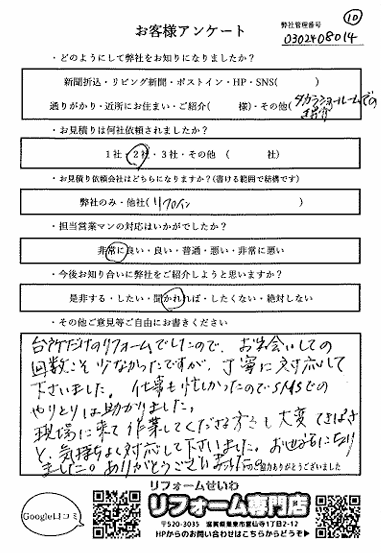 お客様アンケート
弊社管理番号
⑩
0302408014
・どのようにして弊社をお知りになりましたか？
新聞折込・リビング新聞・ポストイン・HP・SNS( )
通りがかり・近所にお住まい・ご紹介( 様)・その他(タカラショールームでの
・お見積りは何社依頼されましたか？
1社・2社・3社・その他 ( 社)
・お見積り依頼会社はどちらになりますか？(書ける範囲で結構です)
弊社のみ・他社(リフォイン )
・担当営業マンの対応はいかがでしたか？
非常に良い・良い・普通・悪い・非常に悪い
・今後お知り合いに弊社をご紹介しようと思いますか？
是非する・したい・聞かれれば・したくない・絶対しない
・その他ご意見等ご自由にお書きください
台所だけのリフォームでしたので、お出会いしての
回数こそ少なかったですが、丁寧に対応して
下さいました。仕事も忙しかったのでSMSでの
やりとりは助かりました。
現場に来て作業してくださる方々も大変てきぱき
と、気持ちよく対応して下さいました。お世話になり
ました。ありがとうございました。
ご協力ありがとうございました
Google口コミ
リフォームせいわ
リフォーム専門店
〒520-3035 滋賀県栗東市霊仙寺1丁目2-12
HPからのお問い合わせはこちらからどうぞ➡